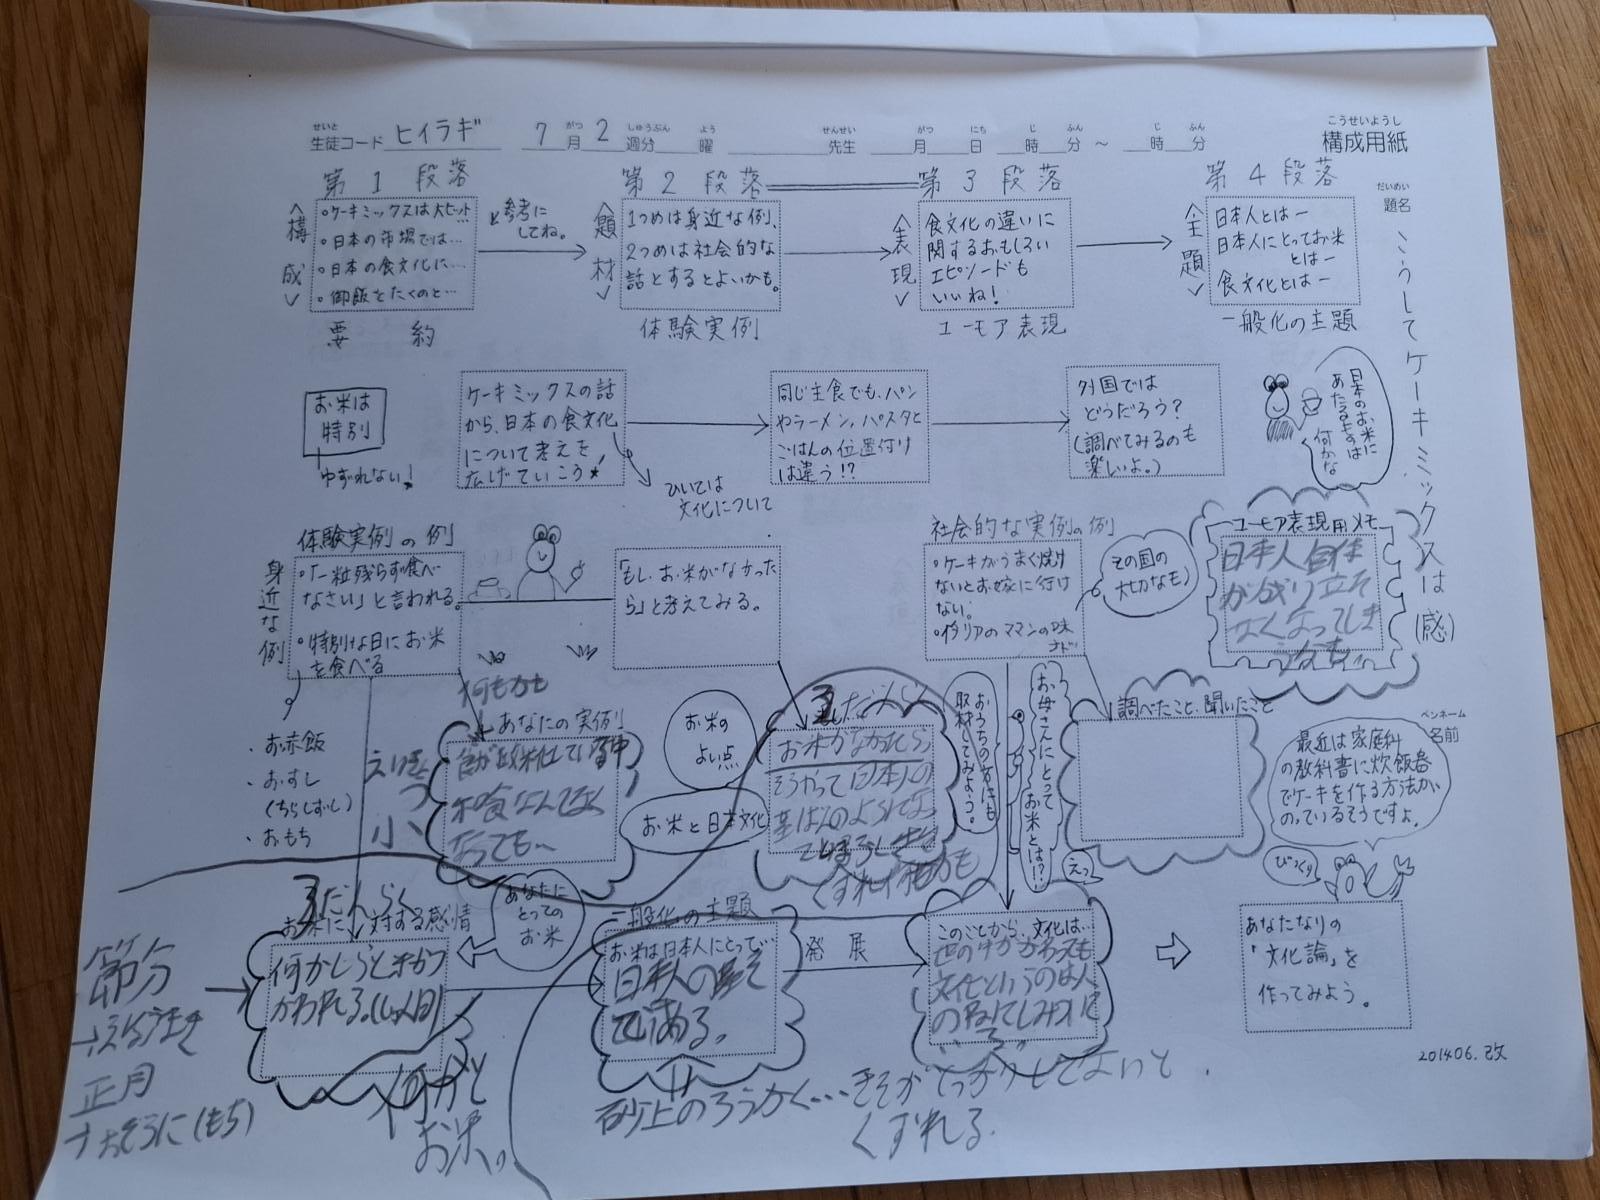 せいと がつ しゅうぶん よう せんせい がつ にち じ ふん じ ふん こうせいようし
生徒コード ヒイラギ 7月 2週分 曜 先生 月 日 時 分 ～ 時 分 構成用紙
だいめい
題名
こうしてケーキミックスは(感)
第1段落
<構成>
・ケーキミックスは大ヒット…
・日本の市場では…
・日本の食文化に…
・御飯をたくのと…
要約
と参考に
してね。
第2段落
<題材>
1つめは身近な例、
2つめは社会的な
話とするとよいかも。
体験実例
第3段落
<表現>
食文化の違いに
関するおもしろい
エピソードも
いいね!
ユーモア表現
第4段落
<主題>
日本人とは―
日本人にとってお米
とは―
食文化とは―
一般化の主題
お米は
特別
ゆずれない!
ケーキミックスの話
から、日本の食文化
について考えを
広げていこう
ひいては
文化について
同じ主食でも、パン
やラーメン、パスタと
ごはんの位置付け
は違う!?
外国では
どうだろう?
(調べてみるのも
楽しいよ。)
日本のお米に
あたるものは
何かな
体験実例の例
身近な例
・「一粒残らず食べ
なさい」と言われる。
・特別な日にお米
を食べる
・お赤飯
・おすし
(ちらしずし)
・おもち
「もし、お米がなかった
ら」と考えてみる。
社会的な実例の例
・ケーキがうまく焼け
ないとお嫁に行け
ない。
・イタリアのママンの味
など
その国の
大切なもの
ユーモア表現用メモ
日本人自体
が成り立そ
なくなってしま
何もかも
あなたの実例
食が欧米化している中
和食なんてなく
なっても〜
小
お米の
よい点
お米と日本文化
お米がなかったら
くずれ
おうちの方にも
取材してみよう。
お母さんにとって
お米とは!?
えっ
調べたこと、聞いたこと
ペンネーム
名前
最近は家庭科
の教科書に炊飯器
でケーキを作る方法が
のっているそうですよ。
びっくり
3だんらく
お米に対する感情
何かしらときかっ
かわれる。
あなたに
とっての
お米
何かと
お米。
節分
正月
→おぞうに(もち)
一般化の主題
お米は日本人にとって…
日本人の
である。
発展
このことから、文化は…
世の中がかわっても
文化というのは人
砂上のろうかく…きそがしっかりしてないと
くずれる.
あなたなりの
「文化論」を
作ってみよう。
201406.改